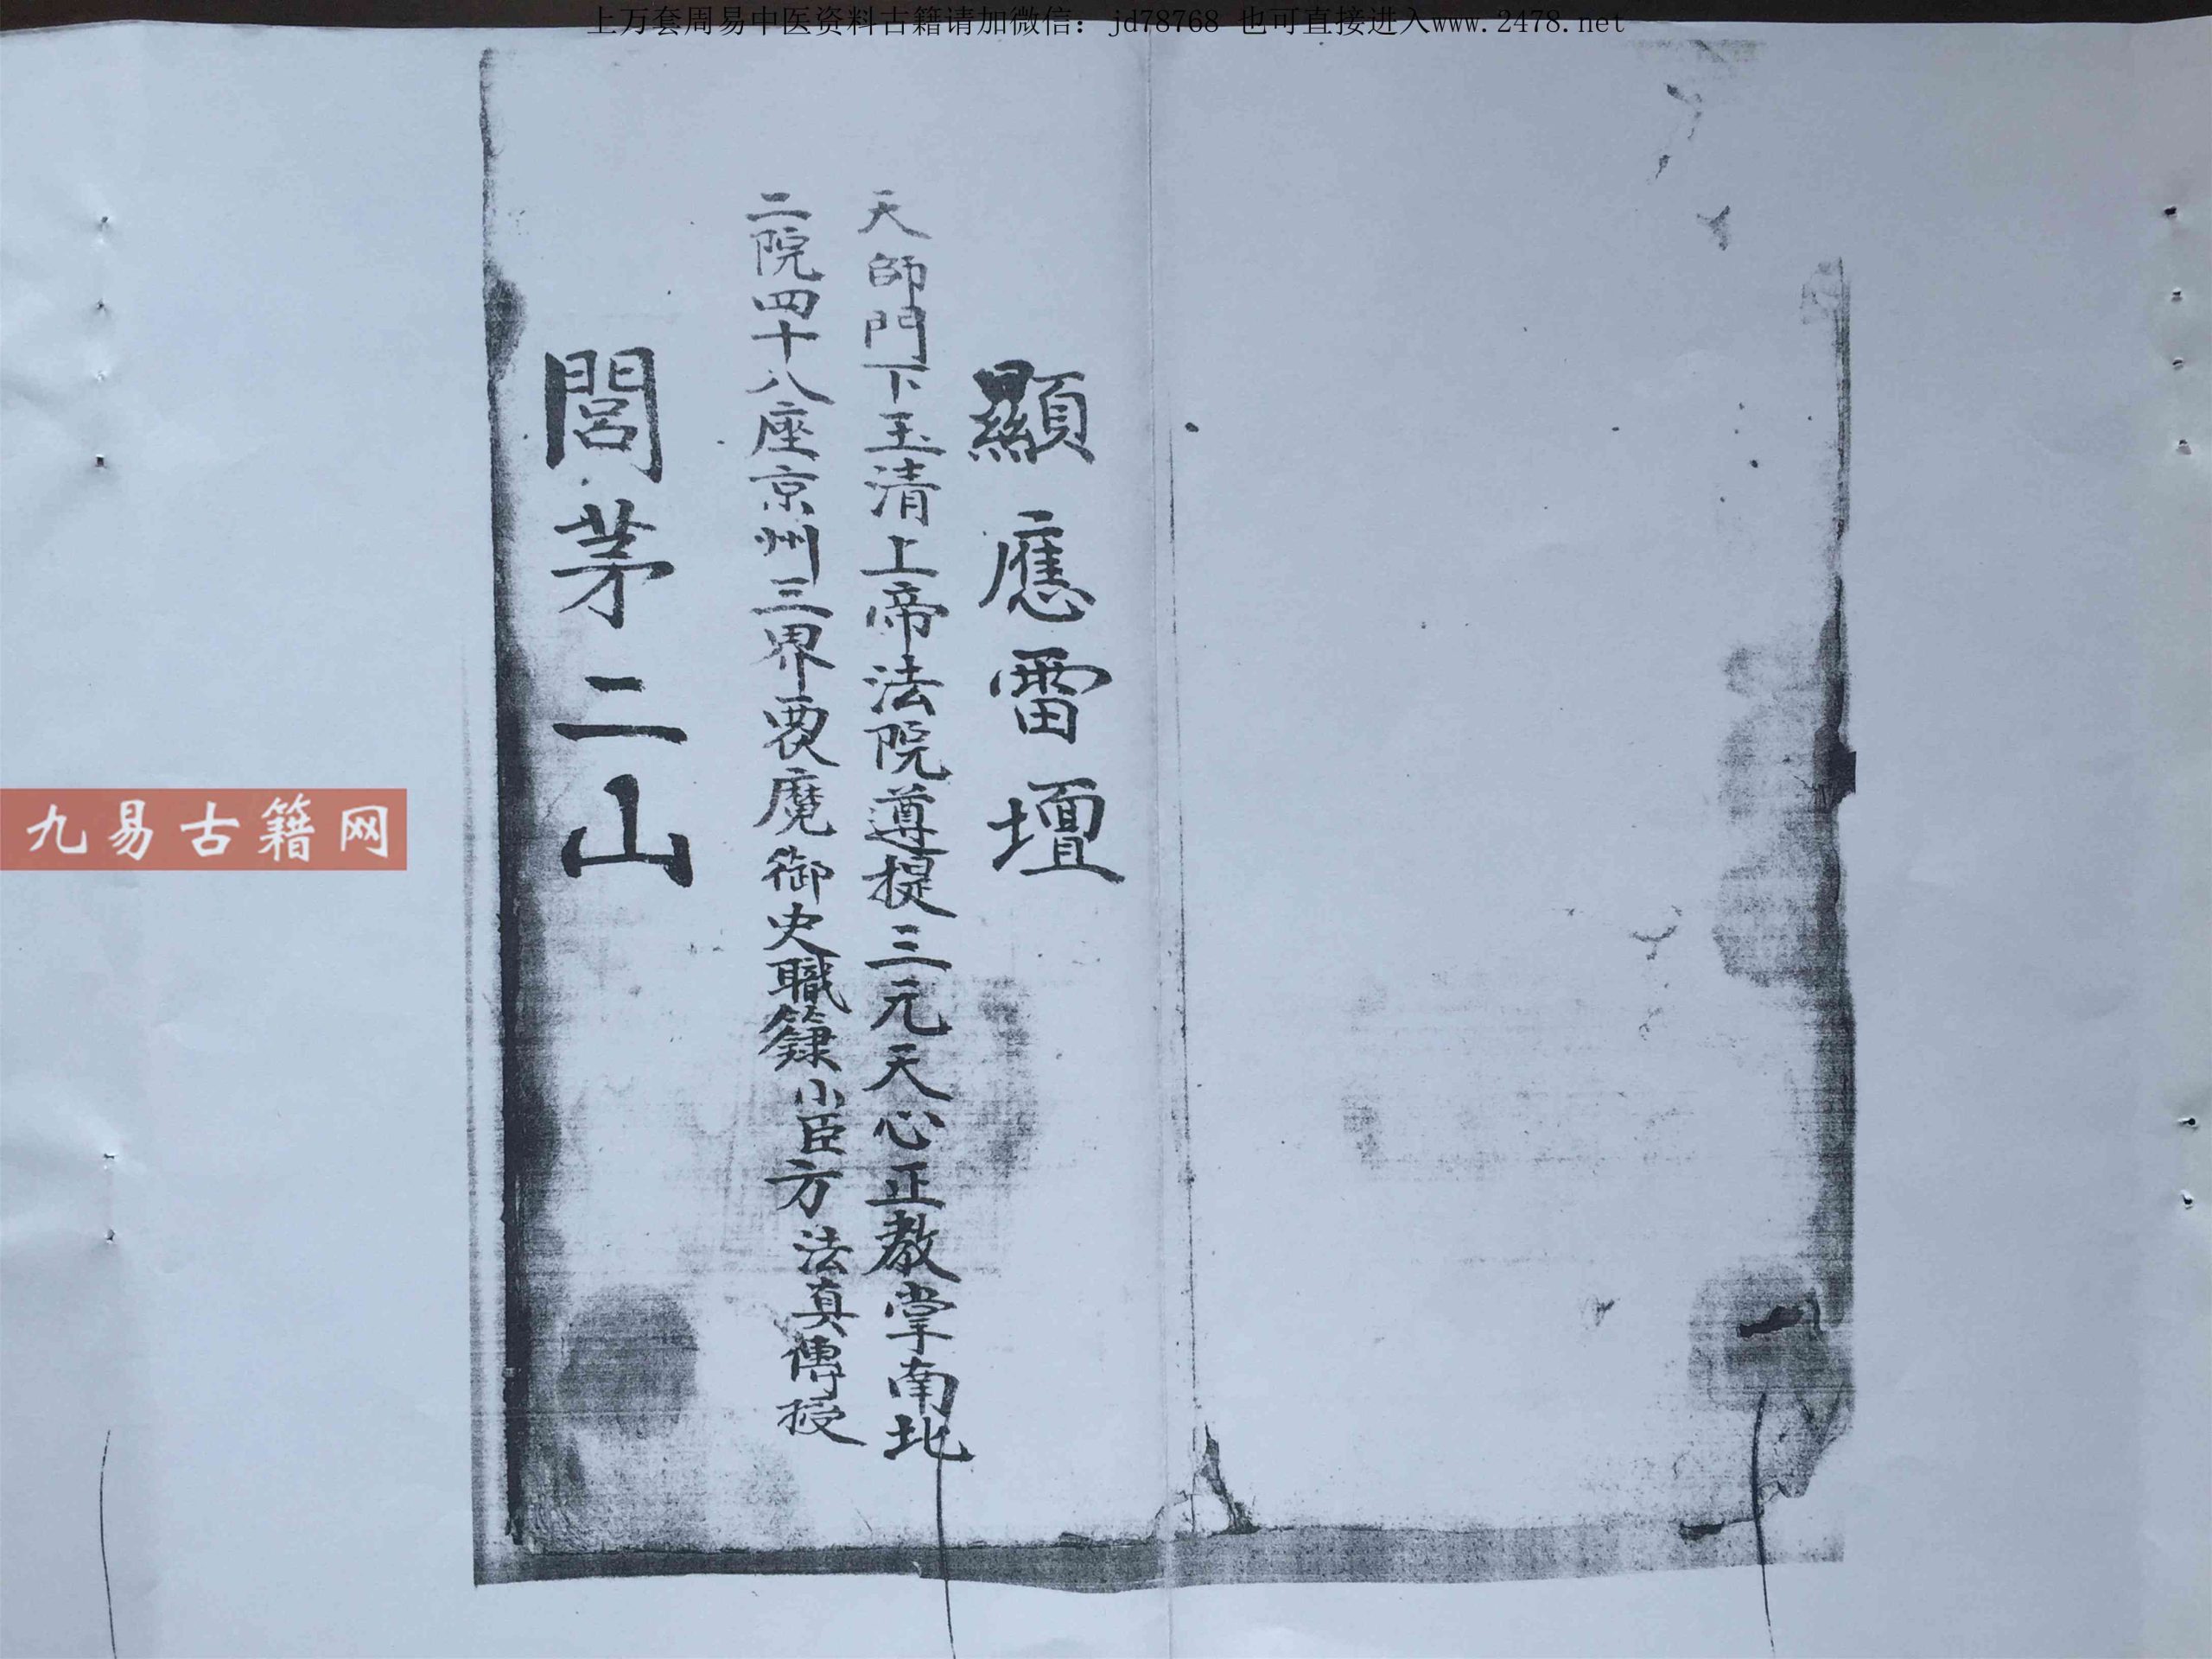 上万套周易中医资料古籍请加微信：jd78768 也可直接进入www.2478.net
顯應雷壇
天師門下玉清上帝法院遵提三元天心正教掌南北
二院四十八座京州三界㐮魔御史職籙小臣方法真傳授
閭茅二山
九易古籍网